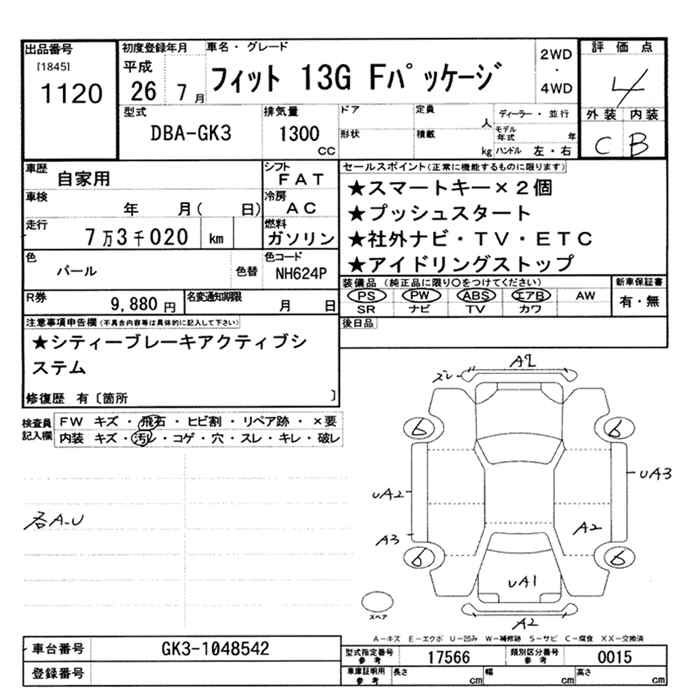 出品番号
[1845]
1120
初度登録年月
平成
26 7月
車名・グレード
フィット 13G Fパッケージ
2WD
・
4WD
評価点
4
外装 内装
C B
型式
DBA-GK3
排気量
1300
CC
ドア
形状
定員
人
積載
kg
ディーラー・並行
モデル年式 年
ハンドル 左・右
車歴
自家用
シフト
FAT
車検
年 月( 日)
冷房
AC
走行
7万3千020 km
燃料
ガソリン
色
パール
色替
色コード
NH624P
R券
9,880 円
名変通知期限
月 日
セールスポイント(正常に機能するものに限ります)
★スマートキー×2個
★プッシュスタート
★社外ナビ・TV・ETC
★アイドリングストップ
装備品 (純正品に限り○をつけてください)
PS PW ABS エアB AW
SR ナビ TV カワ
新車保証書
有・無
後日品
注意事項申告欄(不具合内容等は具体的に記入して下さい)
★シティーブレーキアクティブシ
ステム
修復歴 有〔箇所 〕
検査員
記入欄
FW キズ・飛石・ヒビ割・リペア跡・×要
内装 キズ・汚レ・コゲ・穴・スレ・キレ・破レ
各A-U
ズレ
A2
6
6
UA2
UA3
A3
A2
6
6
UA1
A2
スペア
A-キズ E-エクボ U-凹み W-補修跡 S-サビ C-腐食 XX-交換済
車台番号
GK3-1048542
登録番号
型式指定番号
参考
17566
類別区分番号
参考
0015
車庫証明用
参考
長さ cm
幅 cm
高さ cm